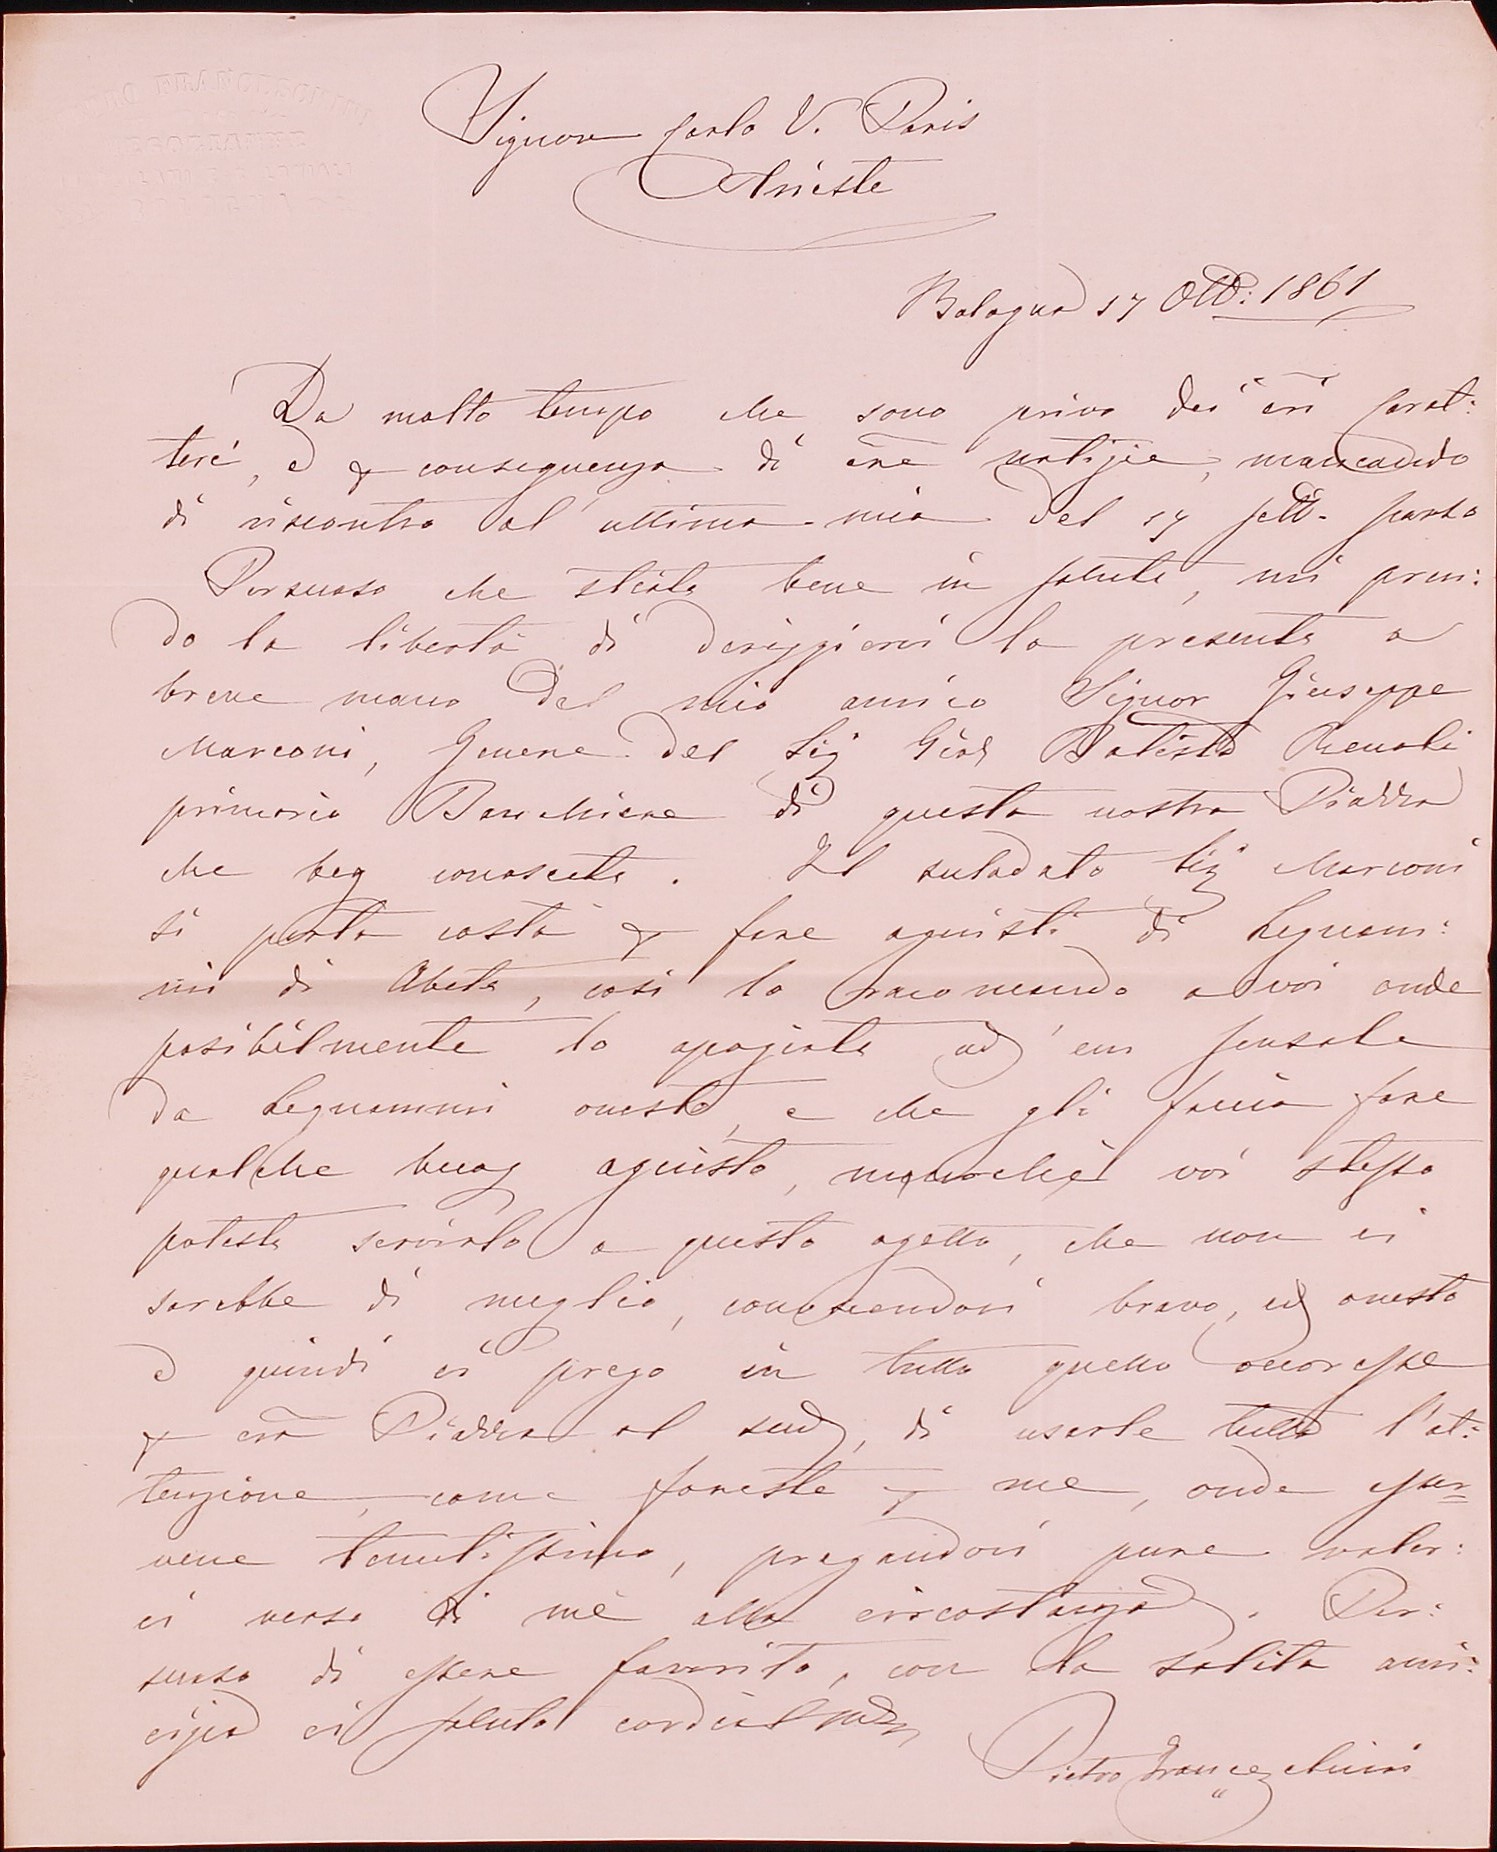 PIETRO FRANCESCHINI
BOLOGNA
Signore Carlo V. Paris
Trieste
Bologna 17 Ott: 1861
Da molto tempo che sono privo dei vri Carat:
teri, e p conseguenza di vre notizie, mancando
di riscontro al ultima mia del 17 Sett. passo
Persuaso che stiate bene in salute, mi pren:
do la libertà di deriggiervi la presente a
breve mano del mio amico Signor Giuseppe
Marconi, Genere del Sig Gioa Batista Renoli
primario Banchiere di questa nostra Piazza
che ben conoscete. Il sulodato Sig Marconi
si porta costà p fare aquisti di Legnam:
mi di Abete, così lo racomando a voi onde
posibilmente lo apogiate ad un sensale
da Legnammi onesto, e che gli facia fare
qualche buon aquisto, nonchè voi stesso
poteste servirlo a questo ogetto, che non vi
sarebbe di meglio, conoscendovi bravo, ed onesto
e quindi vi prego in tutto quello ocoresse
p vra Piazza al sud, di usarle tutta l'at:
tenzione, come fareste p me, onde esser=
vene tenutissimo, pregandovi pure valer:
vi verso di me alla circostanza. Per:
suaso di essere favorito, con la solita ami:
cizia vi saluto cordialm
Pietro Franceschini